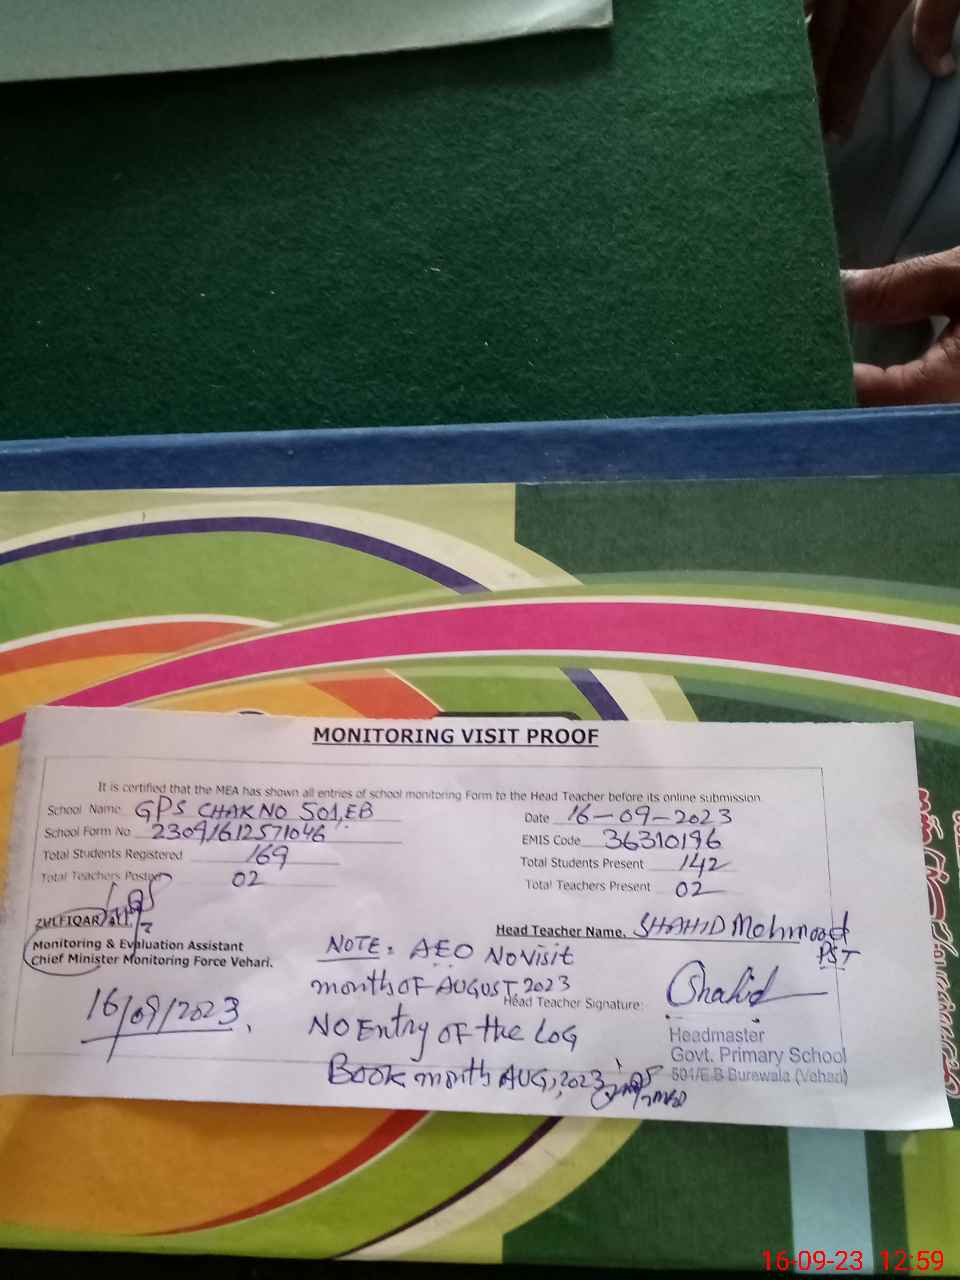 MONITORING VISIT PROOF
It is certified that the MEA has shown all entries of school monitoring Form to the Head Teacher before its online submission.
School Name GPS CHAK NO 501, EB
Date 16-09-2023
School Form No 23091612571046
EMIS Code 36310196
Total Students Registered 169
Total Students Present 142
Total Teachers Posted 02
Total Teachers Present 02
ZULFIQAR ALI
Monitoring & Evaluation Assistant
Chief Minister Monitoring Force Vehari.
16/09/2023.
Head Teacher Name. SHAHID Mahmood
PST
NOTE: AEO NO Visit
month OF AUGUST, 2023
Head Teacher Signature: Shahid
NO Entry OF the LOG
Book month AUG, 2023
Headmaster
Govt. Primary School
501/E.B Burewala (Vehari)
16-09-23 12:59